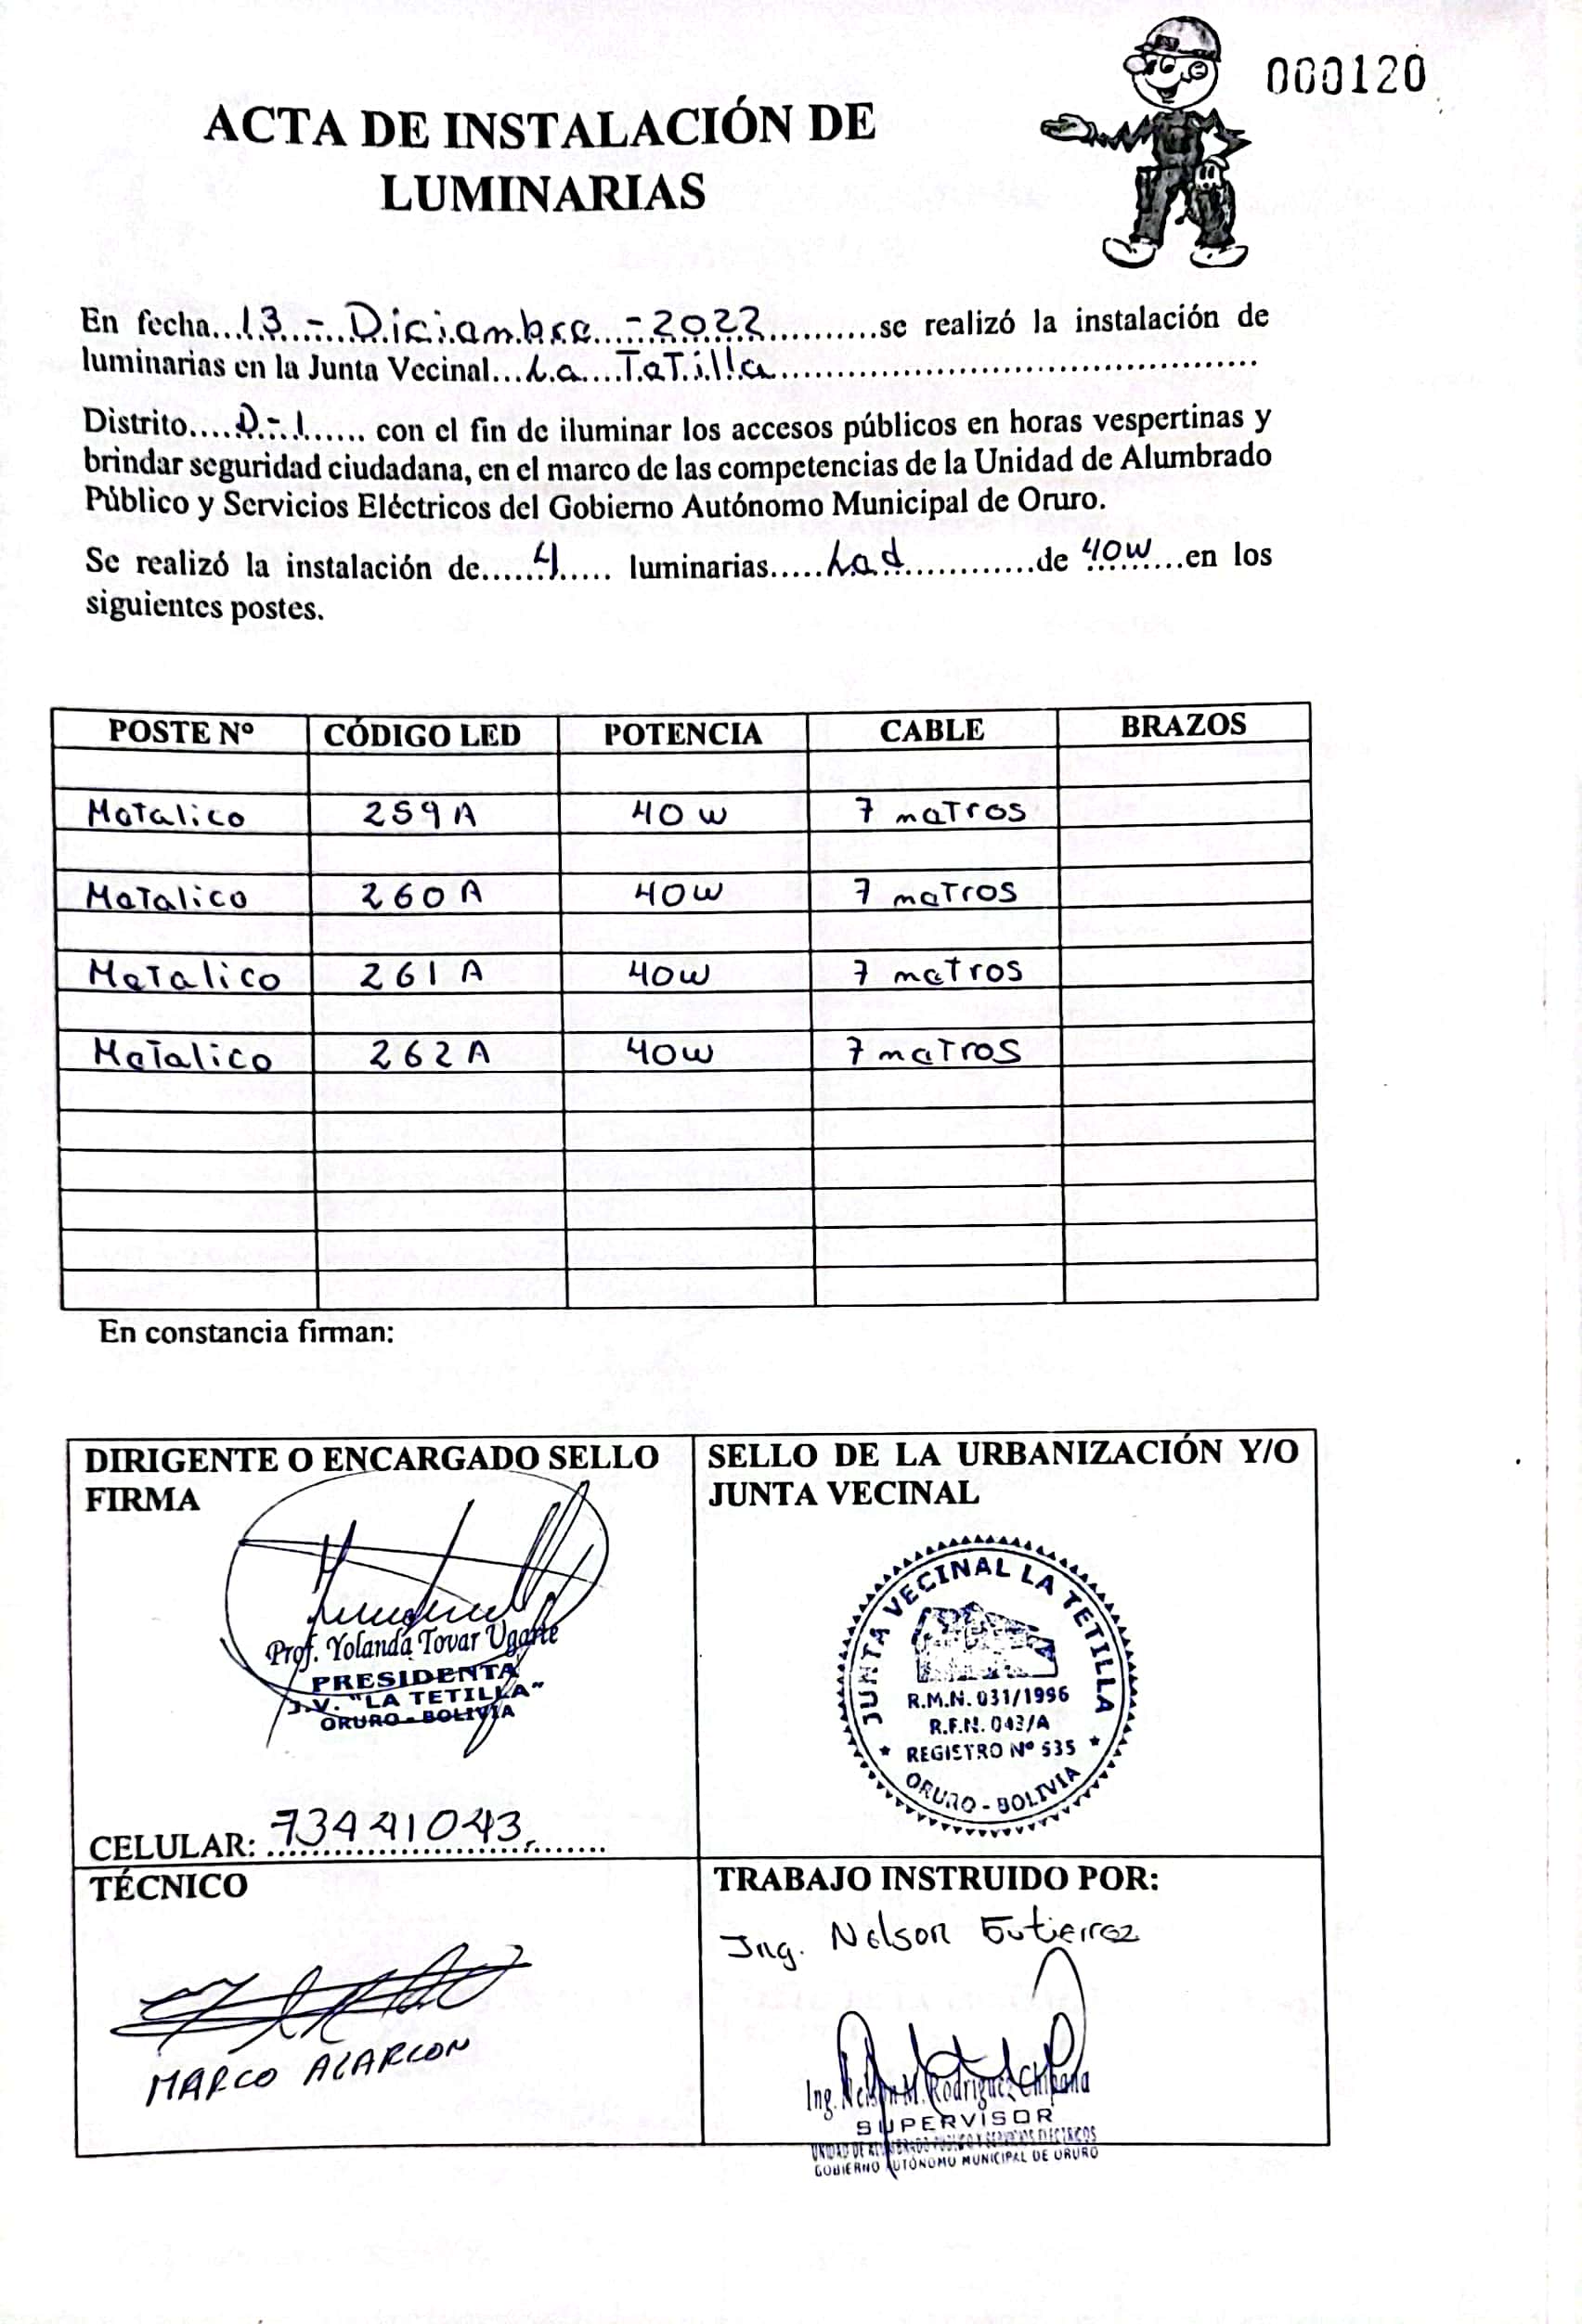 000120
ACTA DE INSTALACIÓN DE
LUMINARIAS
En fecha...13.-.Diciembre..-2022...........se realizó la instalación de
luminarias en la Junta Vecinal...La....Tetilla...............................................
Distrito....D.-.1...... con el fin de iluminar los accesos públicos en horas vespertinas y
brindar seguridad ciudadana, en el marco de las competencias de la Unidad de Alumbrado
Público y Servicios Eléctricos del Gobierno Autónomo Municipal de Oruro.
Se realizó la instalación de......4..... luminarias.....Led............de 40W...en los
siguientes postes.
POSTE Nº CÓDIGO LED POTENCIA CABLE BRAZOS
Metalico 259A 40w 7 metros
Metalico 260A 40w 7 metros
Metalico 261A 40w 7 metros
Metalico 262A 40w 7 metros
En constancia firman:
DIRIGENTE O ENCARGADO SELLO
FIRMA
Prof. Yolanda Tovar Ugarte
PRESIDENTA
J.V. "LA TETILLA"
ORURO - BOLIVIA
CELULAR: 73441043
SELLO DE LA URBANIZACIÓN Y/O
JUNTA VECINAL
JUNTA VECINAL LA TETILLA
R.M.N. 031/1996
R.F.N. 043/A
* REGISTRO Nº 535 *
ORURO - BOLIVIA
TÉCNICO
MARCO ALARCON
TRABAJO INSTRUIDO POR:
Ing. Nelson Gutierrez
Ing. Nelson M. Rodriguez Chipana
SUPERVISOR
UNIDAD DE ALUMBRADO PUBLICO Y SERVICIOS ELECTRICOS
GOBIERNO AUTÓNOMO MUNICIPAL DE ORURO